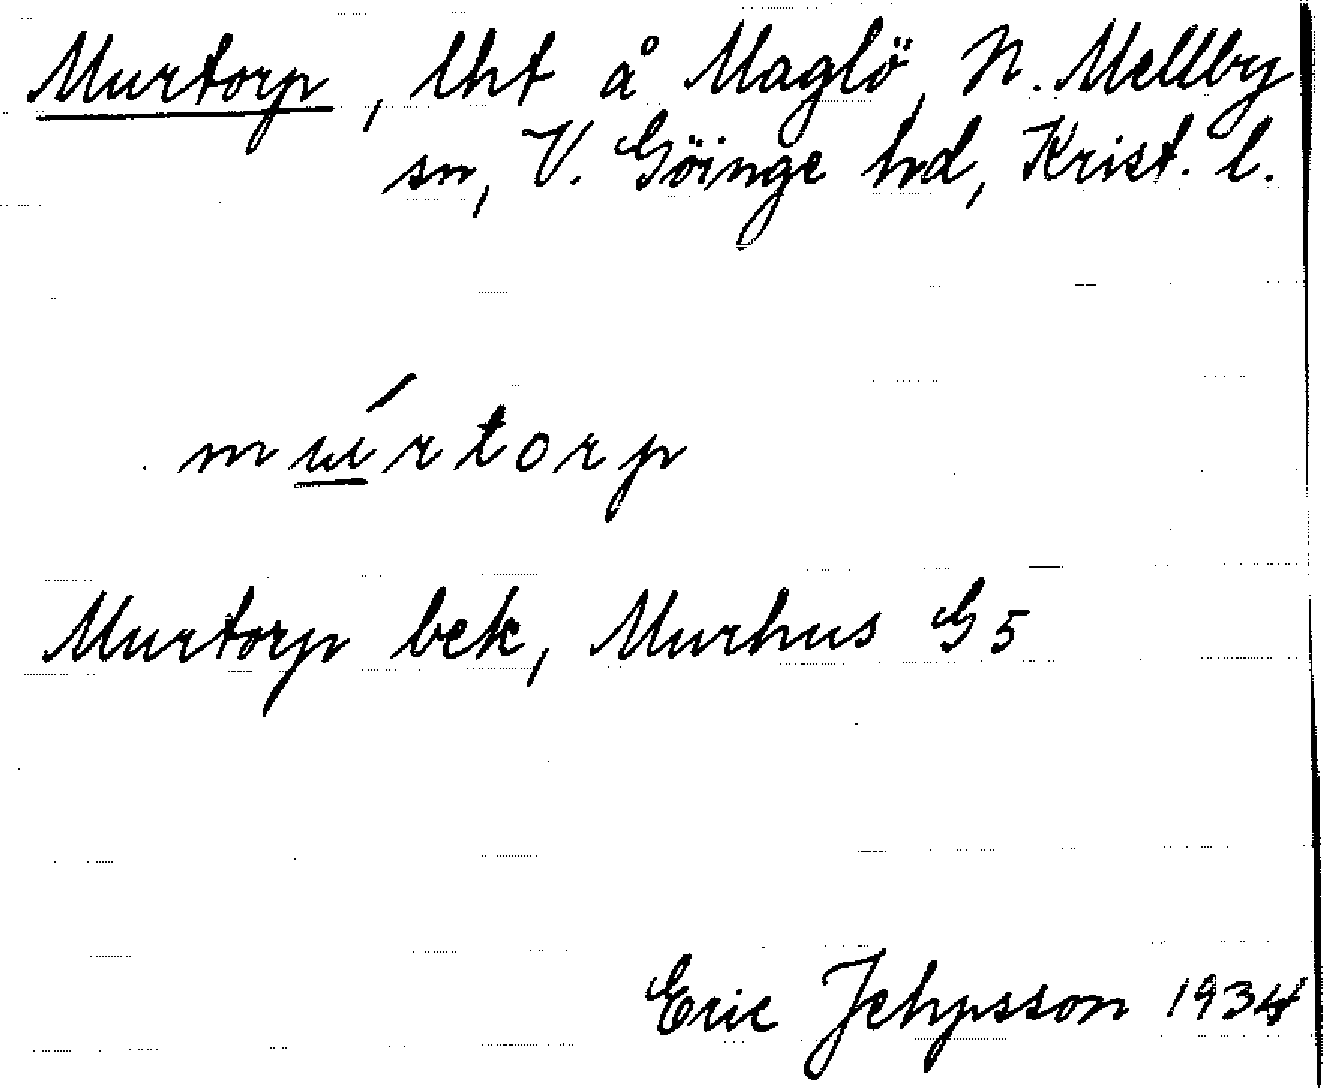 Murtorp, lht å Maglö, N. Mellby
sn, V. Göinge hd, Krist. l.
múrtorp
Murtorp bek, Murhus G5
Eric Jehpsson 1934